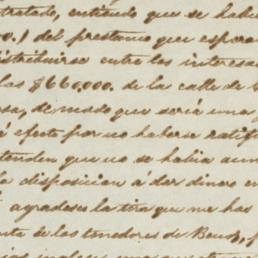 tratado, entiendo que se habia
0.) del prestamo que espera
istribuirse entre los interesa
las $660.000. de la calle de
sa, de modo que será una
á efecto por no haberse ratifi
tenden que no se habia aun
la disposicion á dar dinero en
agradesco la tira que me has
nta de los tenedores de Bonos,